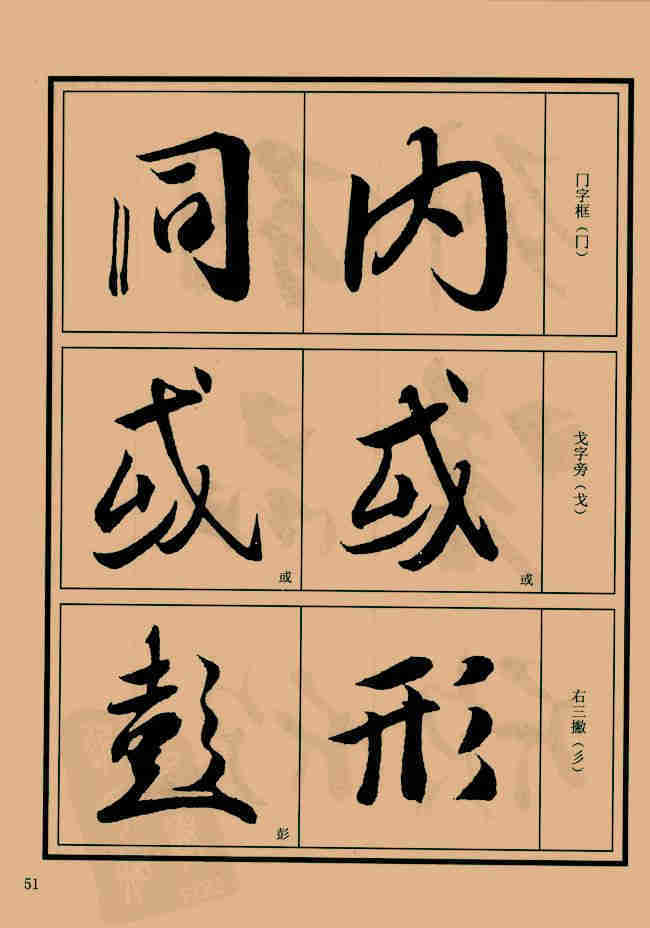 门字框（冂）
内
同
戈字旁（戈）
或
或
或
或
右三撇（彡）
形
彭
彭
51